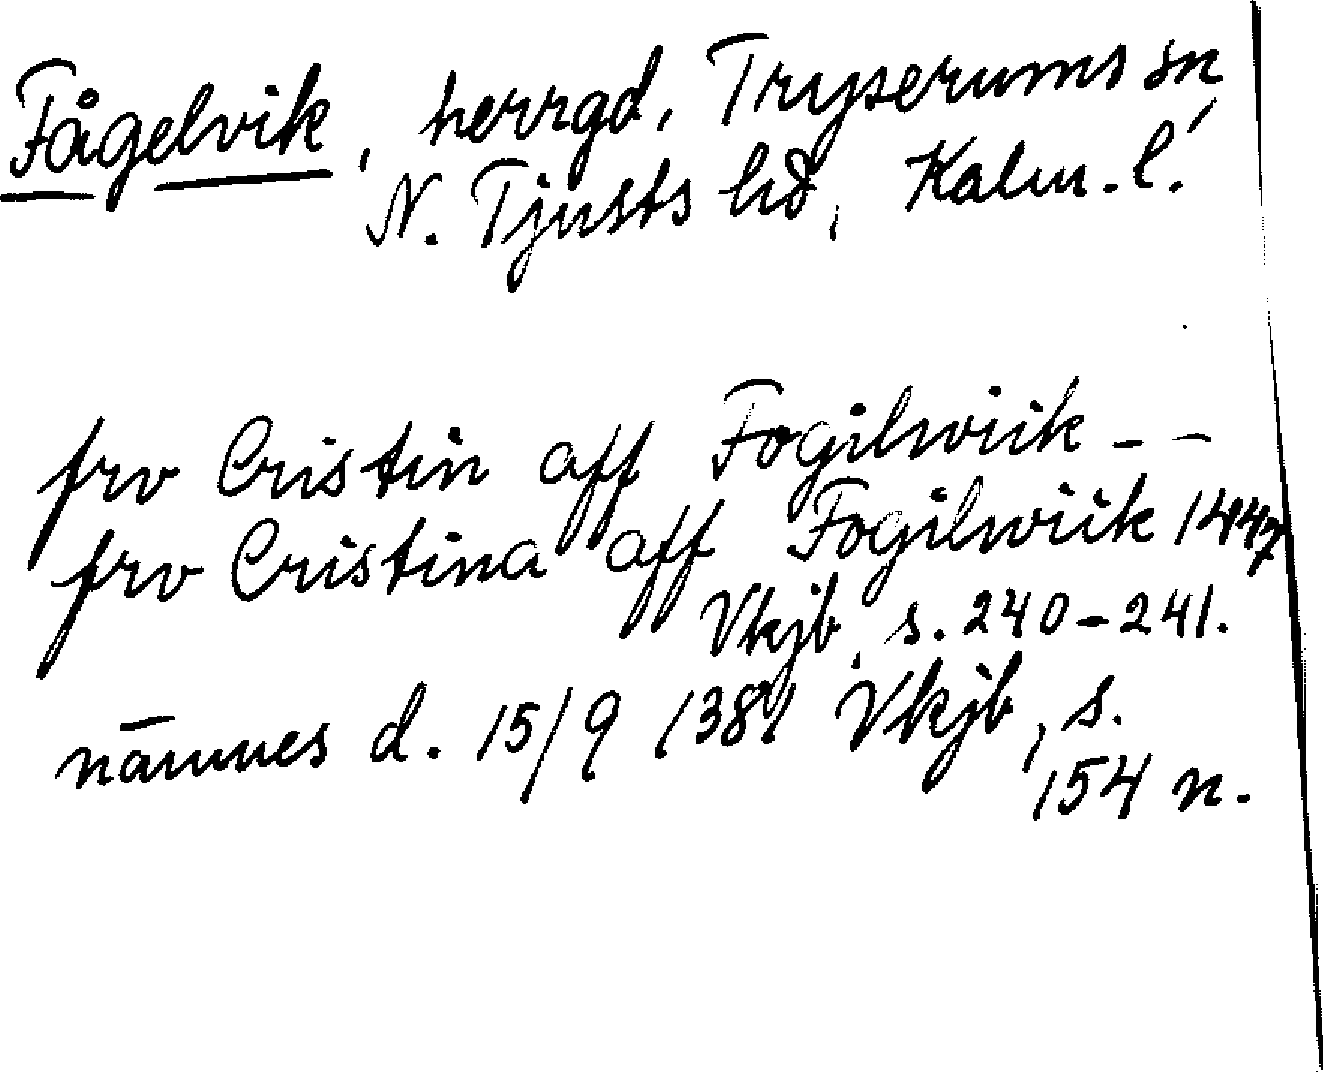 Fågelvik, herrgd, Tryserums sn,
N. Tjusts hd, Kalm. l.
frv Cristin aff Fogilwiik - -
frv Cristina aff Fogilwiik 1447
Vkjb, s. 240-241.
nämnes d. 15/9 1381 Vkjb, s.
154 n.